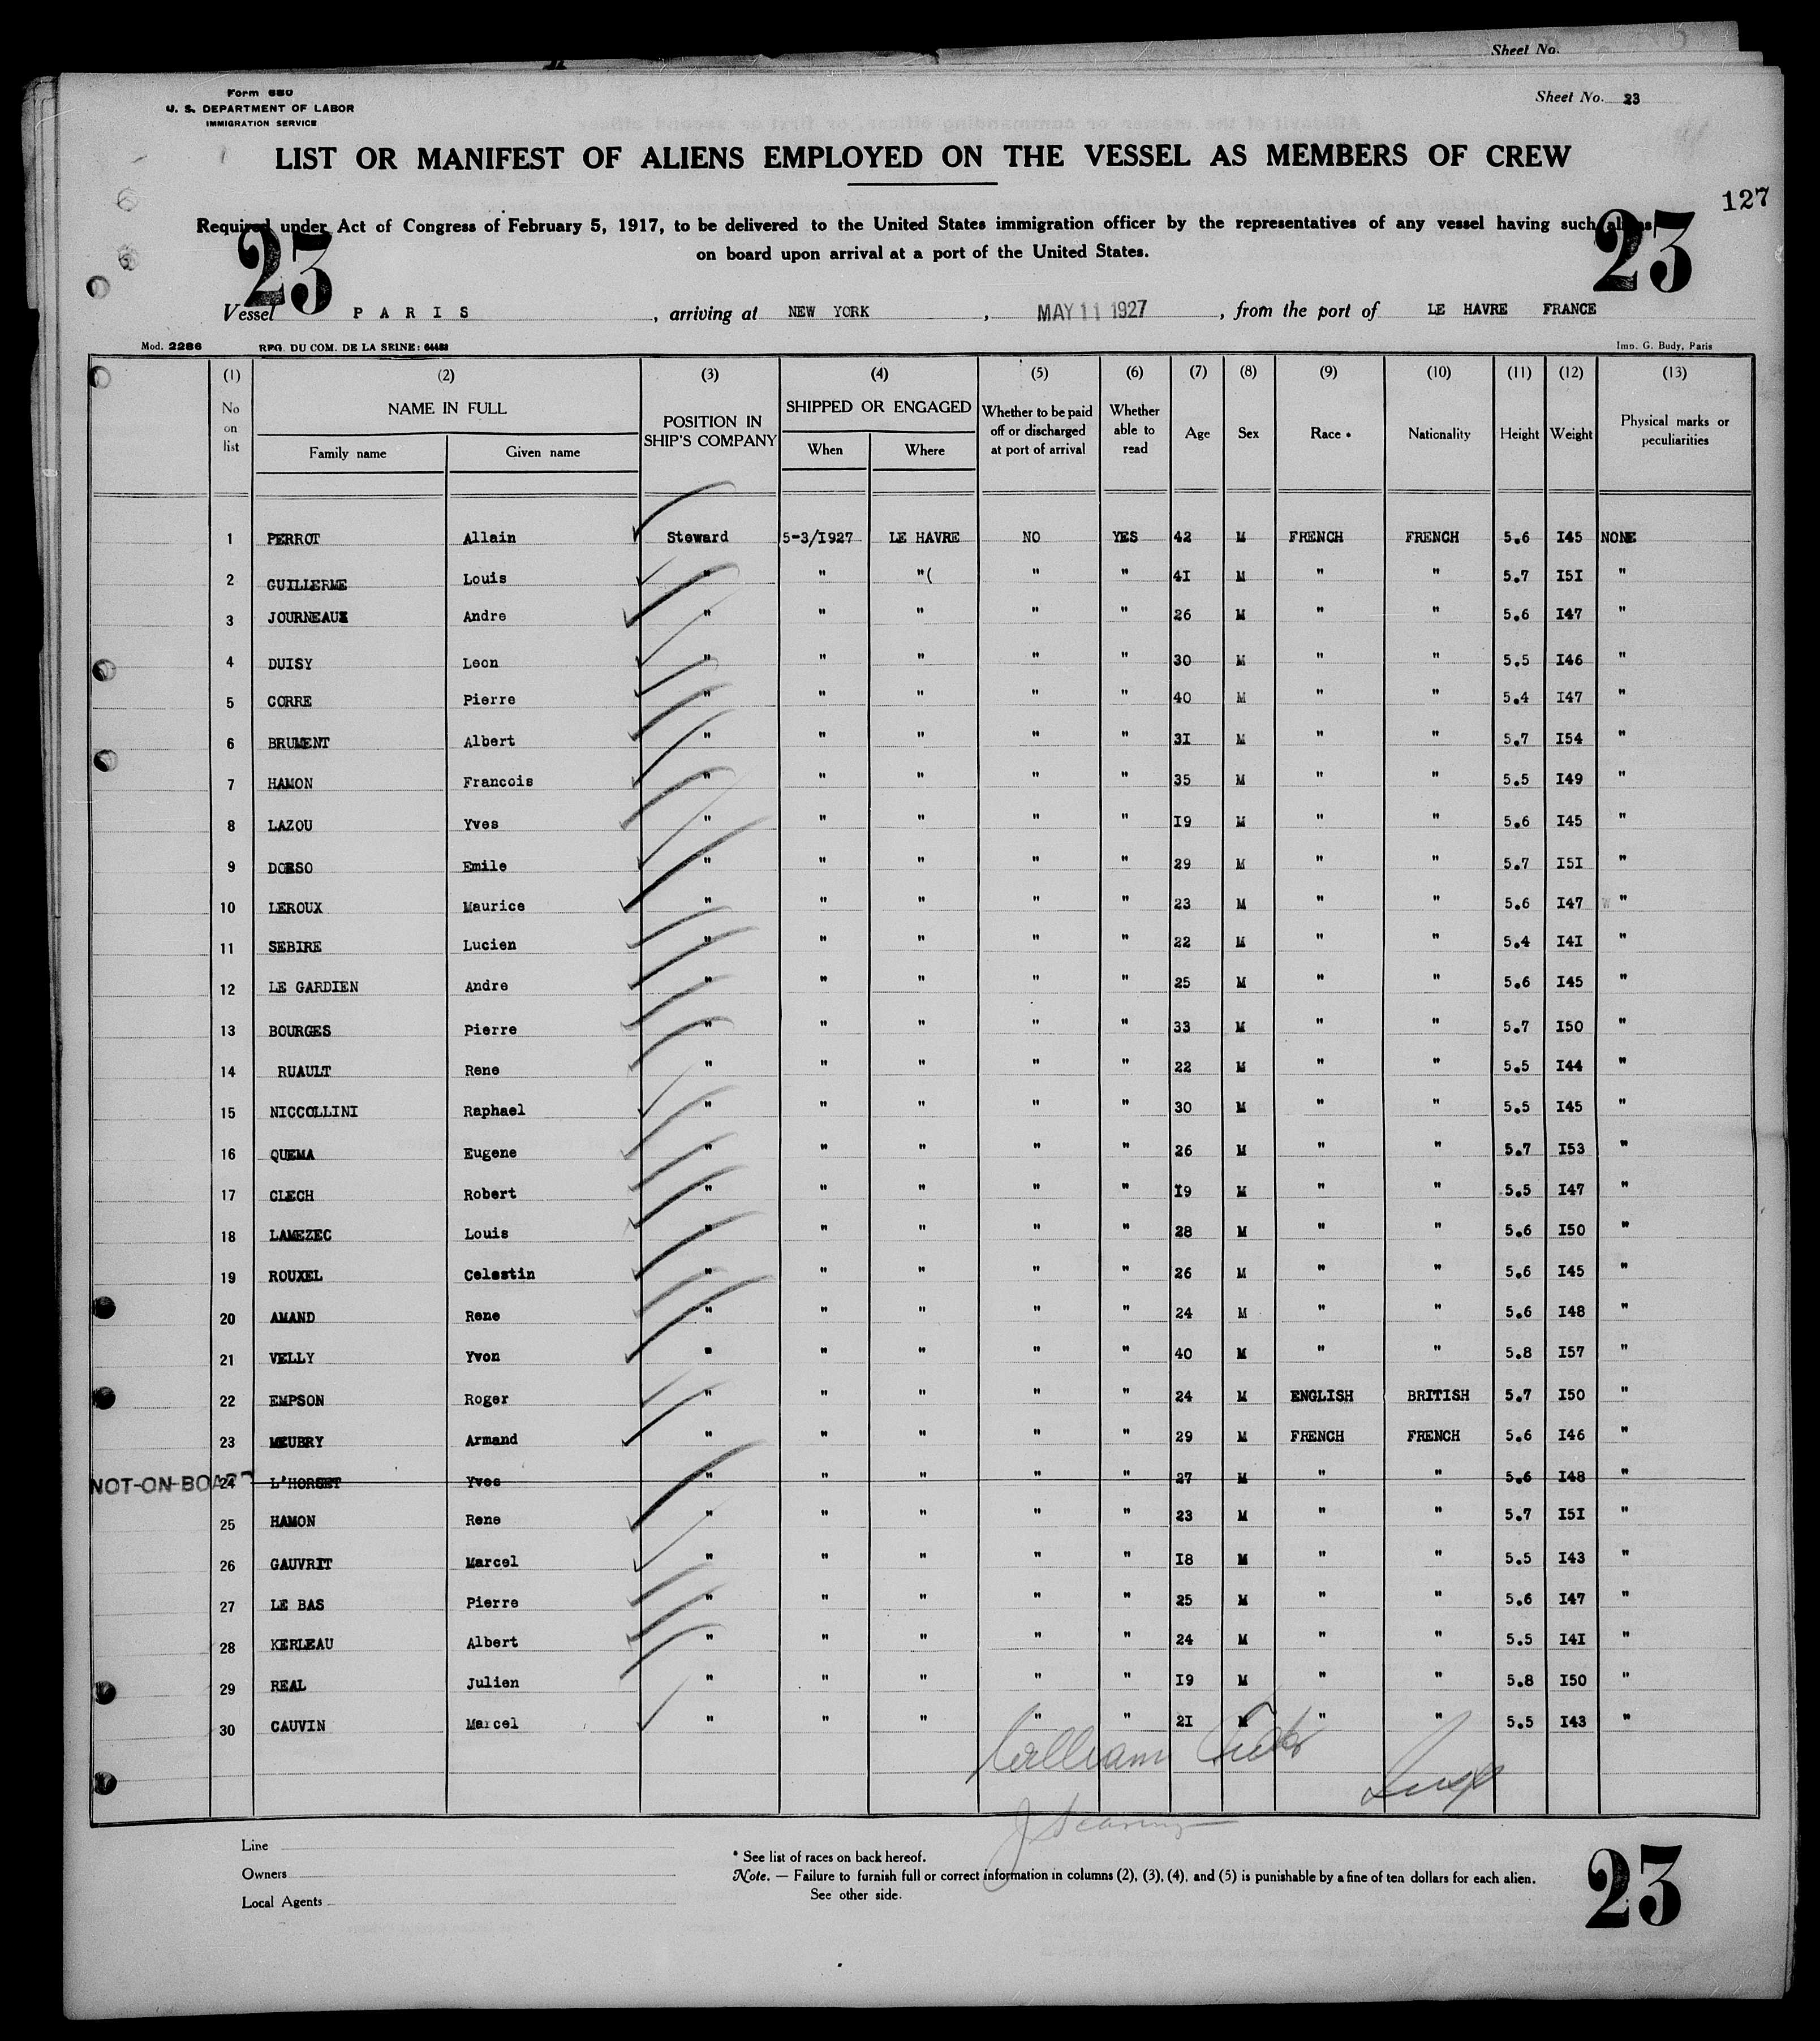 Sheet No.
Form 680
U. S. DEPARTMENT OF LABOR
IMMIGRATION SERVICE
Sheet No. 23
LIST OR MANIFEST OF ALIENS EMPLOYED ON THE VESSEL AS MEMBERS OF CREW
127
Required under Act of Congress of February 5, 1917, to be delivered to the United States immigration officer by the representatives of any vessel having such aliens
on board upon arrival at a port of the United States.
23 23
Vessel PARIS, arriving at NEW YORK, MAY 11 1927, from the port of LE HAVRE FRANCE
Mod. 2286 REG. DU COM. DE LA SEINE: 64488 Imp. G. Budy, Paris
(1) (2) (3) (4) (5) (6) (7) (8) (9) (10) (11) (12) (13)
No on list NAME IN FULL POSITION IN SHIP'S COMPANY SHIPPED OR ENGAGED Whether to be paid off or discharged at port of arrival Whether able to read Age Sex Race * Nationality Height Weight Physical marks or peculiarities
Family name Given name When Where
1 PERROT Allain Steward 5-3/1927 LE HAVRE NO YES 42 M FRENCH FRENCH 5.6 I45 NONE
2 GUILLERME Louis " " "( " " 4I M " " 5.7 I5I "
3 JOURNEAUX Andre " " " " " 26 M " " 5.6 I47 "
4 DUISY Leon " " " " " 30 M " " 5.5 I46 "
5 CORRE Pierre " " " " " 40 M " " 5.4 I47 "
6 BRUMENT Albert " " " " " 3I M " " 5.7 I54 "
7 HAMON Francois " " " " " 35 M " " 5.5 I49 "
8 LAZOU Yves " " " " " I9 M " " 5.6 I45 "
9 DORSO Emile " " " " " 29 M " " 5.7 I5I "
10 LEROUX Maurice " " " " " 23 M " " 5.6 I47 "
11 SEBIRE Lucien " " " " " 22 M " " 5.4 I4I "
12 LE GARDIEN Andre " " " " " 25 M " " 5.6 I45 "
13 BOURGES Pierre " " " " " 33 M " " 5.7 I50 "
14 RUAULT Rene " " " " " 22 M " " 5.5 I44 "
15 NICCOLLINI Raphael " " " " " 30 M " " 5.5 I45 "
16 QUEMA Eugene " " " " " 26 M " " 5.7 I53 "
17 CLECH Robert " " " " " I9 M " " 5.5 I47 "
18 LAMEZEC Louis " " " " " 28 M " " 5.6 I50 "
19 ROUXEL Celestin " " " " " 26 M " " 5.6 I45 "
20 AMAND Rene " " " " " 24 M " " 5.6 I48 "
21 VELLY Yvon " " " " " 40 M " " 5.8 I57 "
22 EMPSON Roger " " " " " 24 M ENGLISH BRITISH 5.7 I50 "
23 MEUBRY Armand " " " " " 29 M FRENCH FRENCH 5.6 I46 "
NOT-ON-BOARD 24 L'HORSET Yves " " " " " 27 M " " 5.6 I48 "
25 HAMON Rene " " " " " 23 M " " 5.7 I5I "
26 GAUVRIT Marcel " " " " " I8 M " " 5.5 I43 "
27 LE BAS Pierre " " " " " 25 M " " 5.6 I47 "
28 KERLEAU Albert " " " " " 24 M " " 5.5 I4I "
29 REAL Julien " " " " " I9 M " " 5.8 I50 "
30 CAUVIN Marcel " " " " " 2I M " " 5.5 I43 "
William
Insp
Line
Owners
Local Agents
* See list of races on back hereof.
Note. — Failure to furnish full or correct information in columns (2), (3), (4), and (5) is punishable by a fine of ten dollars for each alien.
See other side.
23